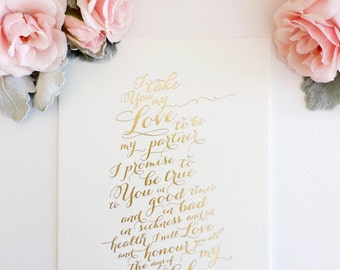 I take
You my
Love to be
my partner
I promise to
be true
to You in good times
and in bad
in sickness and in
health I will Love
and honour you all
the days of my